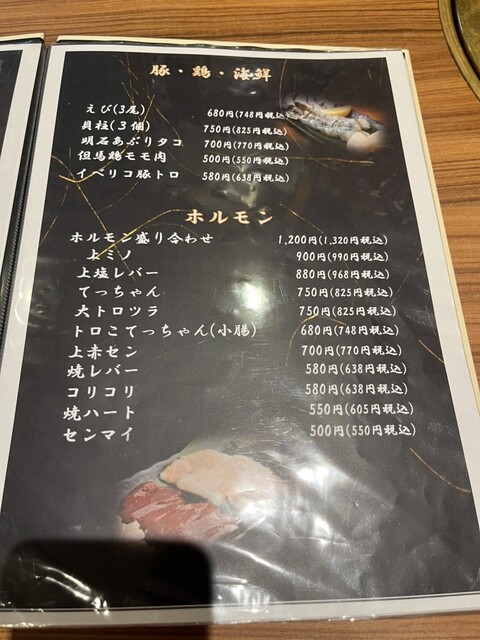 豚・鶏・海鮮
えび(3尾) 680円(748円税込)
貝柱(3個) 750円(825円税込)
明石あぶりタコ 700円(770円税込)
但馬鶏モモ肉 500円(550円税込)
イベリコ豚トロ 580円(638円税込)
ホルモン
ホルモン盛り合わせ 1,200円(1,320円税込)
上ミノ 900円(990円税込)
上塩レバー 880円(968円税込)
てっちゃん 750円(825円税込)
大トロツラ 750円(825円税込)
トロこてっちゃん(小腸) 680円(748円税込)
上赤セン 700円(770円税込)
焼レバー 580円(638円税込)
コリコリ 580円(638円税込)
焼ハート 550円(605円税込)
センマイ 500円(550円税込)